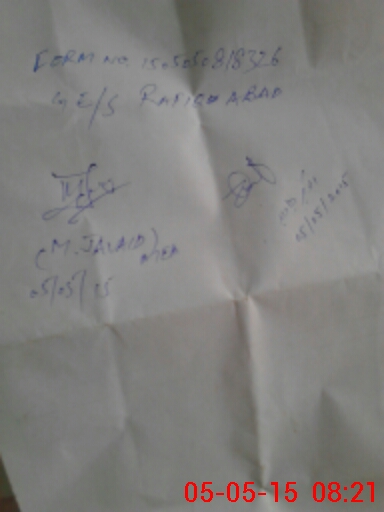 FORM NO. 1505050818326
G E/S RAFIQUABAD
(M. JAVAID)
05/05/15
05/05/2015
05-05-15 08:21